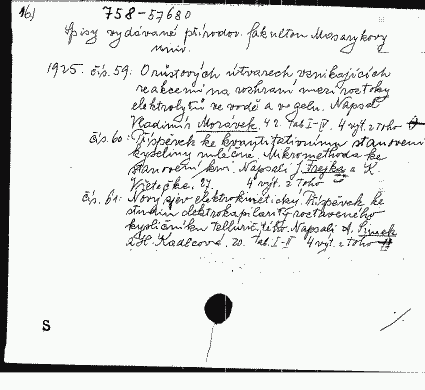 16)
758-57680
Spisy vydávané přírodov. fakultou Masarykovy
univ.
1925. čís. 59: O růstových útvarech vznikajících
reakcemi na rozhraní mezi roztoky
elektrolytů ve vodě a v gelu. Napsal
Vladimír Morávek. 42. Tab I-IV. 4 výt. z toho
čís. 60: Příspěvek ke kvantitativnímu stanovení
kyseliny mléčné. Mikromethoda ke
stanovení krví. Napsali J. Frejka a K.
27 4 výt. z toho
čís. 61: Nový zjev elektrokinetický. Příspěvek ke
studiu elektrokapilarity roztaveného
kysličníku telluričitého. Napsali A. Šimek
a H. Kadlcová. 20. Tab. I-II 4 výt. z toho
S